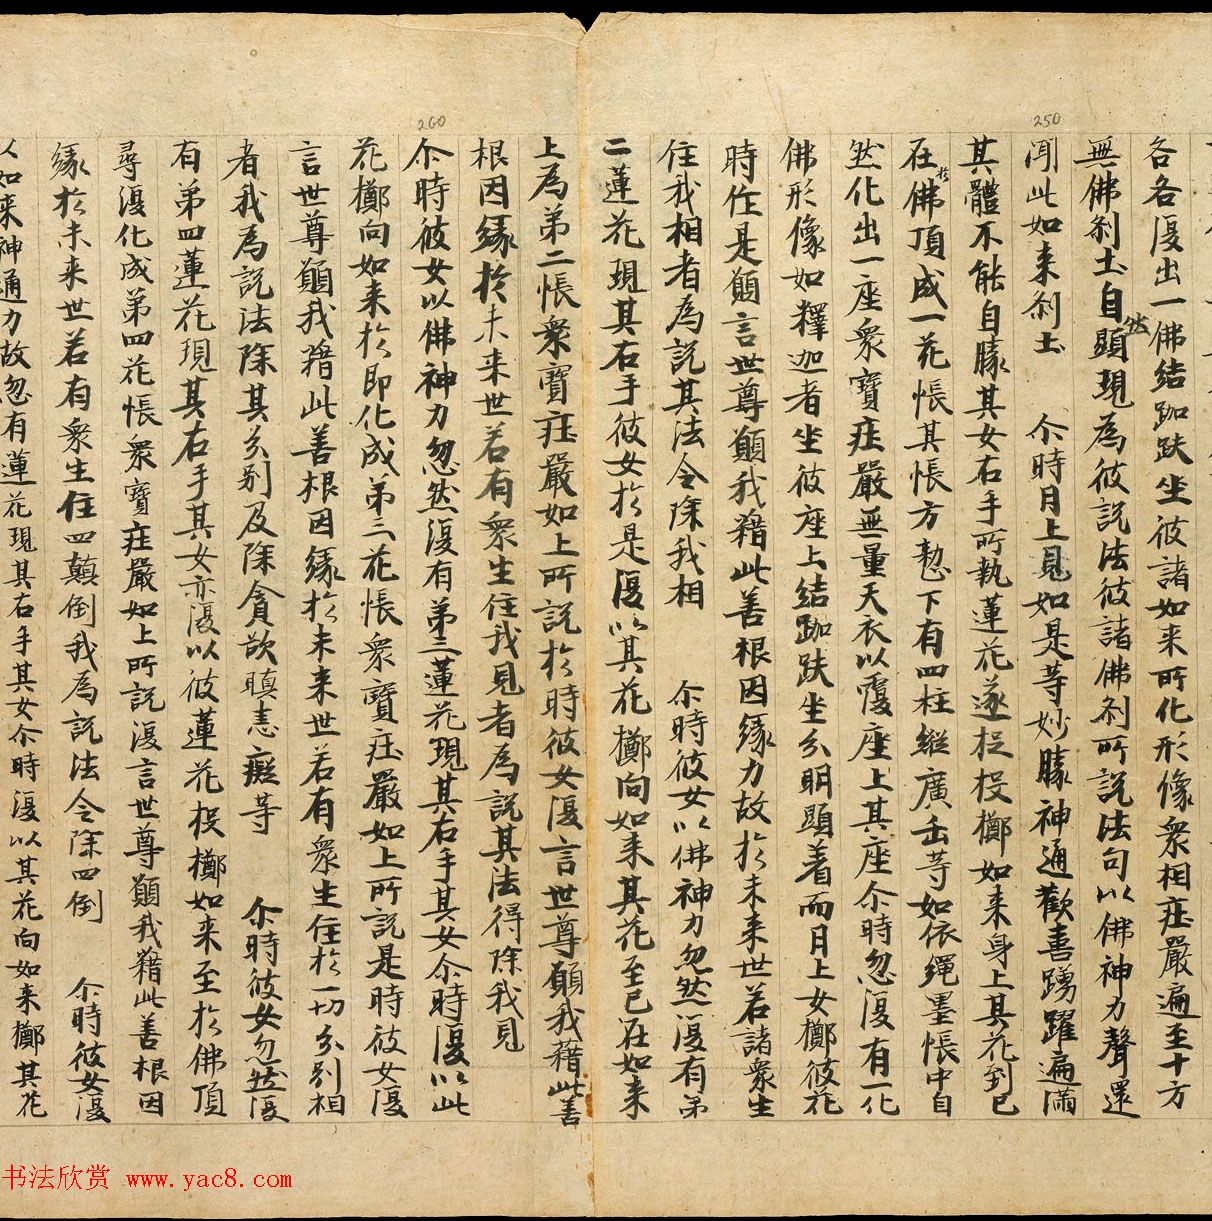 260
250
各各復出一佛結跏趺坐彼諸如来所化形像衆相莊嚴遍至十方
無佛刹土自然顯現為彼説法彼諸佛刹所説法句以佛神力聲還
聞此如来刹土 尒時月上見如是等妙勝神通歡喜踴躍遍滿
其體不能自勝其女右手所執蓮花遂捉投擲如来身上其花到已
在於佛頂成一花帳其帳方整下有四柱縱廣缶等如依繩墨帳中自
然化出一座衆寳莊嚴無量天衣以覆座上其座尒時忽復有一化
佛形像如釋迦者坐彼座上結跏趺坐分明顯着而月上女擲彼花
時作是願言世尊願我藉此善根因緣力故於未来世若諸衆生
住我相者為説其法令除我相 尒時彼女以佛神力忽然復有苐
二蓮花現其右手彼女於是復以其花擲向如来其花至已在如来
上為苐二帳衆寳莊嚴如上所説於時彼女復言世尊願我藉此善
根因緣於未来世若有衆生住我見者為説其法得除我見
尒時彼女以佛神力忽然復有苐三蓮花現其右手其女尒時復以此
花擲向如来於即化成苐三花帳衆寳莊嚴如上所説是時彼女復
言世尊願我藉此善根因緣於未来世若有衆生住於一切分别相
者我為説法除其分别及除貪欲瞋恚癡等 尒時彼女忽然復
有苐四蓮花現其右手其女亦復以彼蓮花投擲如来至於佛頂
尋復化成苐四花帳衆寳莊嚴如上所説復言世尊願我藉此善根因
緣於未来世若有衆生住四顛倒我為説法令除四倒 尒時彼女復
以如来神通力故忽有蓮花現其右手其女尒時復以其花向如来擲其花
书法欣赏 www.yac8.com